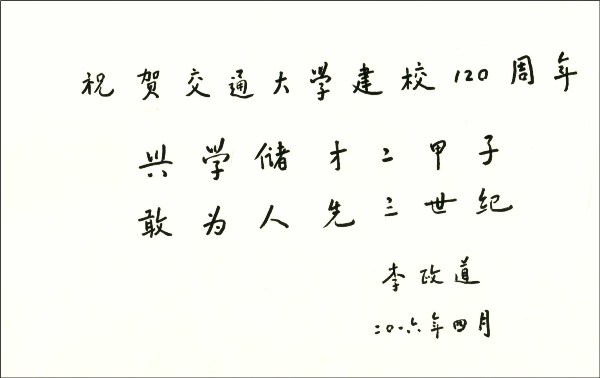 祝贺交通大学建校120周年
兴学储才二甲子
敢为人先三世纪
李政道
二〇一六年四月